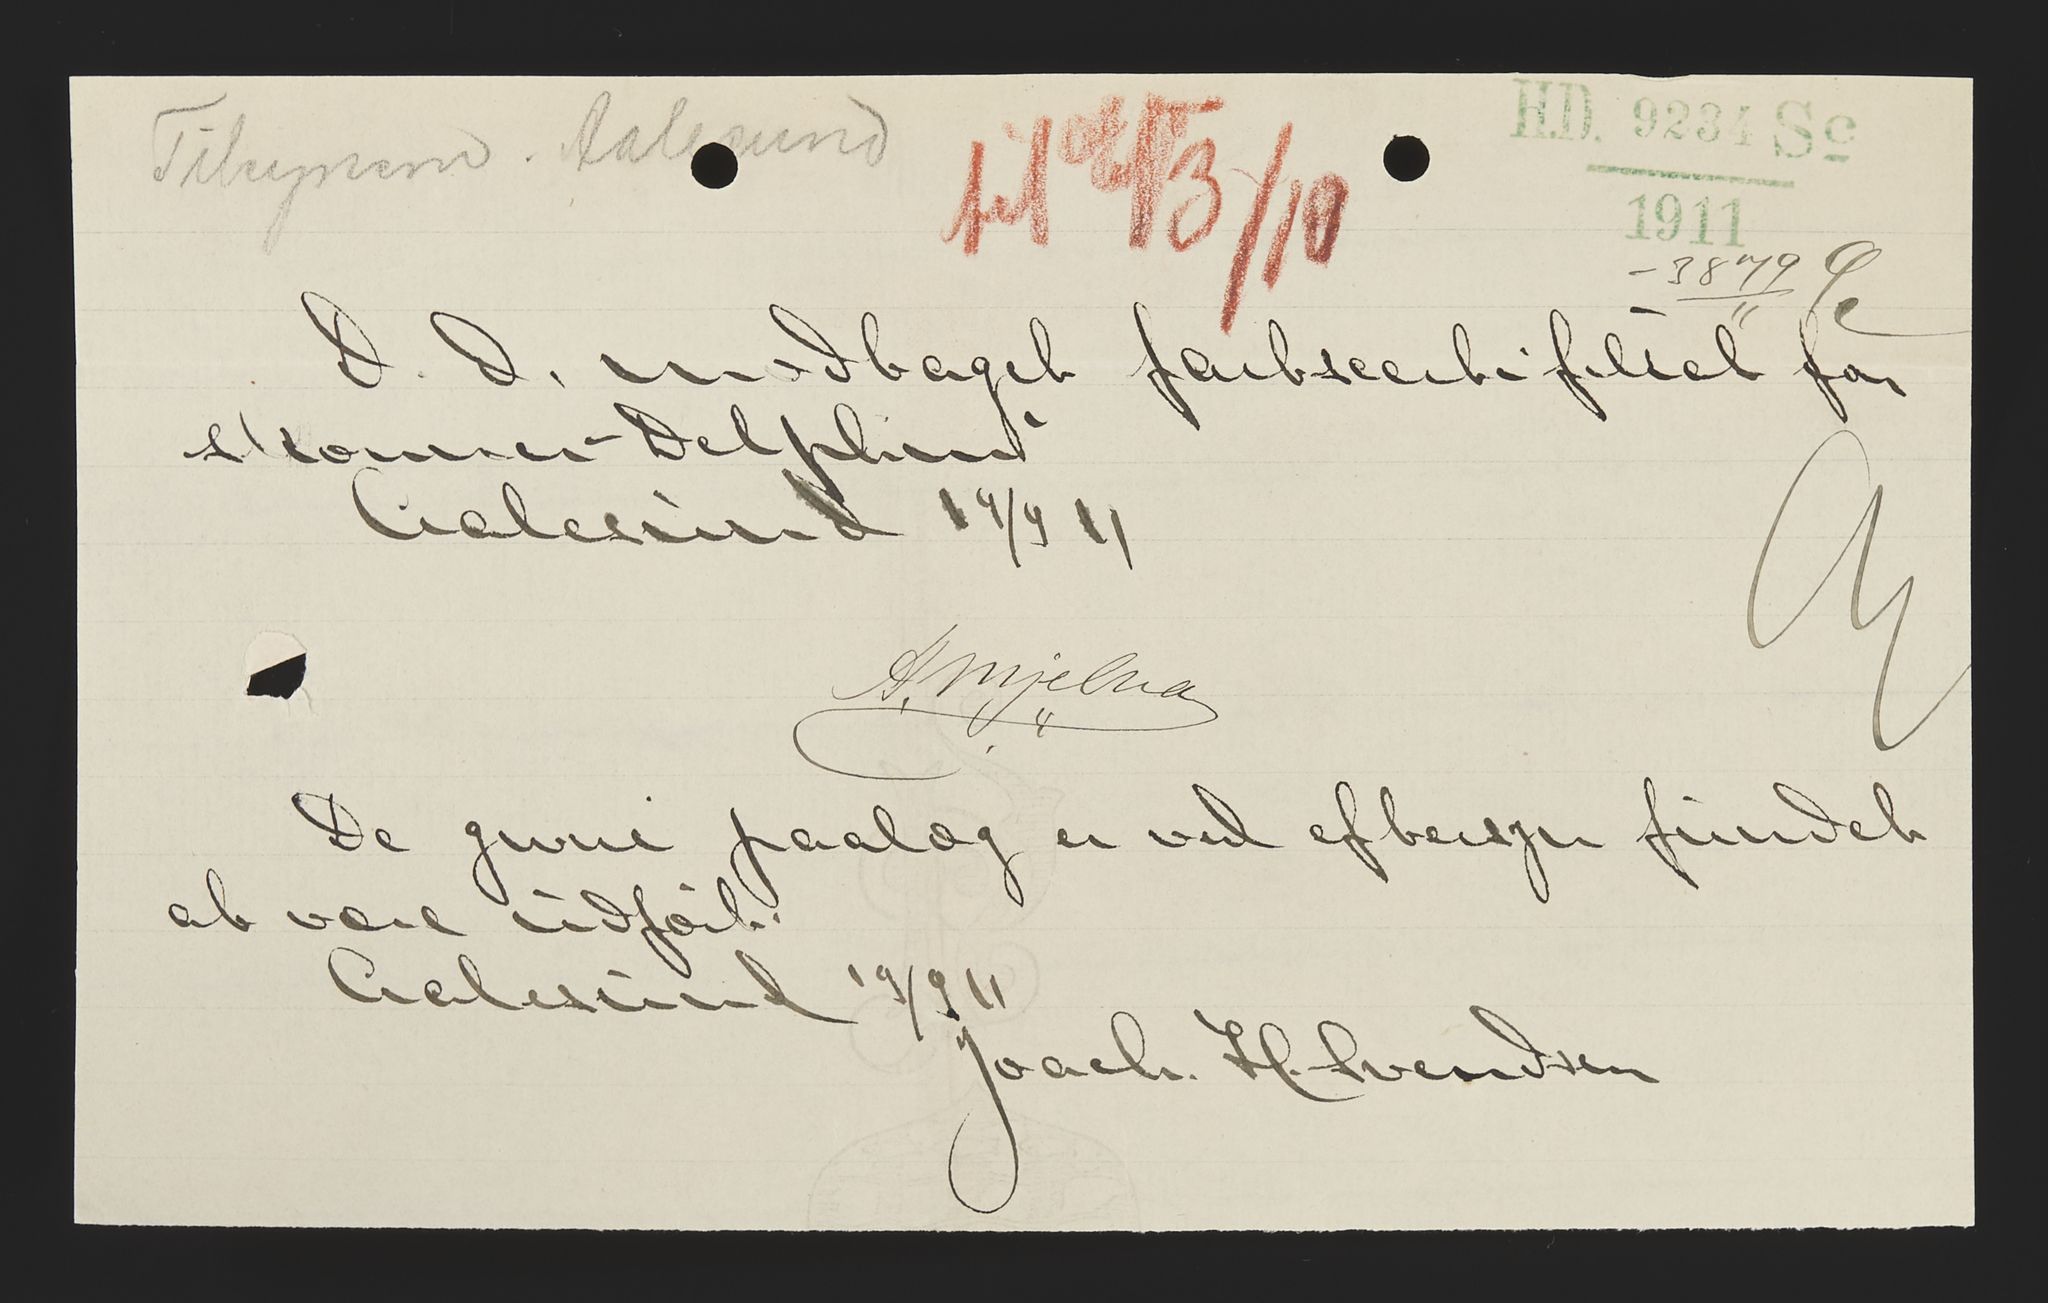 Tilsynsm. Aalesund
til 3/10
H.D. 9234 Sc
1911
- 3879
D. D. modtaget fartscertifikat for
skonnert "Delphin"
Aalesund 14/9 11
A. Mjelva
De givne paalæg er ved eftersyn fundet
at være udført.
Aalesund 19/9 11
Joach. H. Svendsen